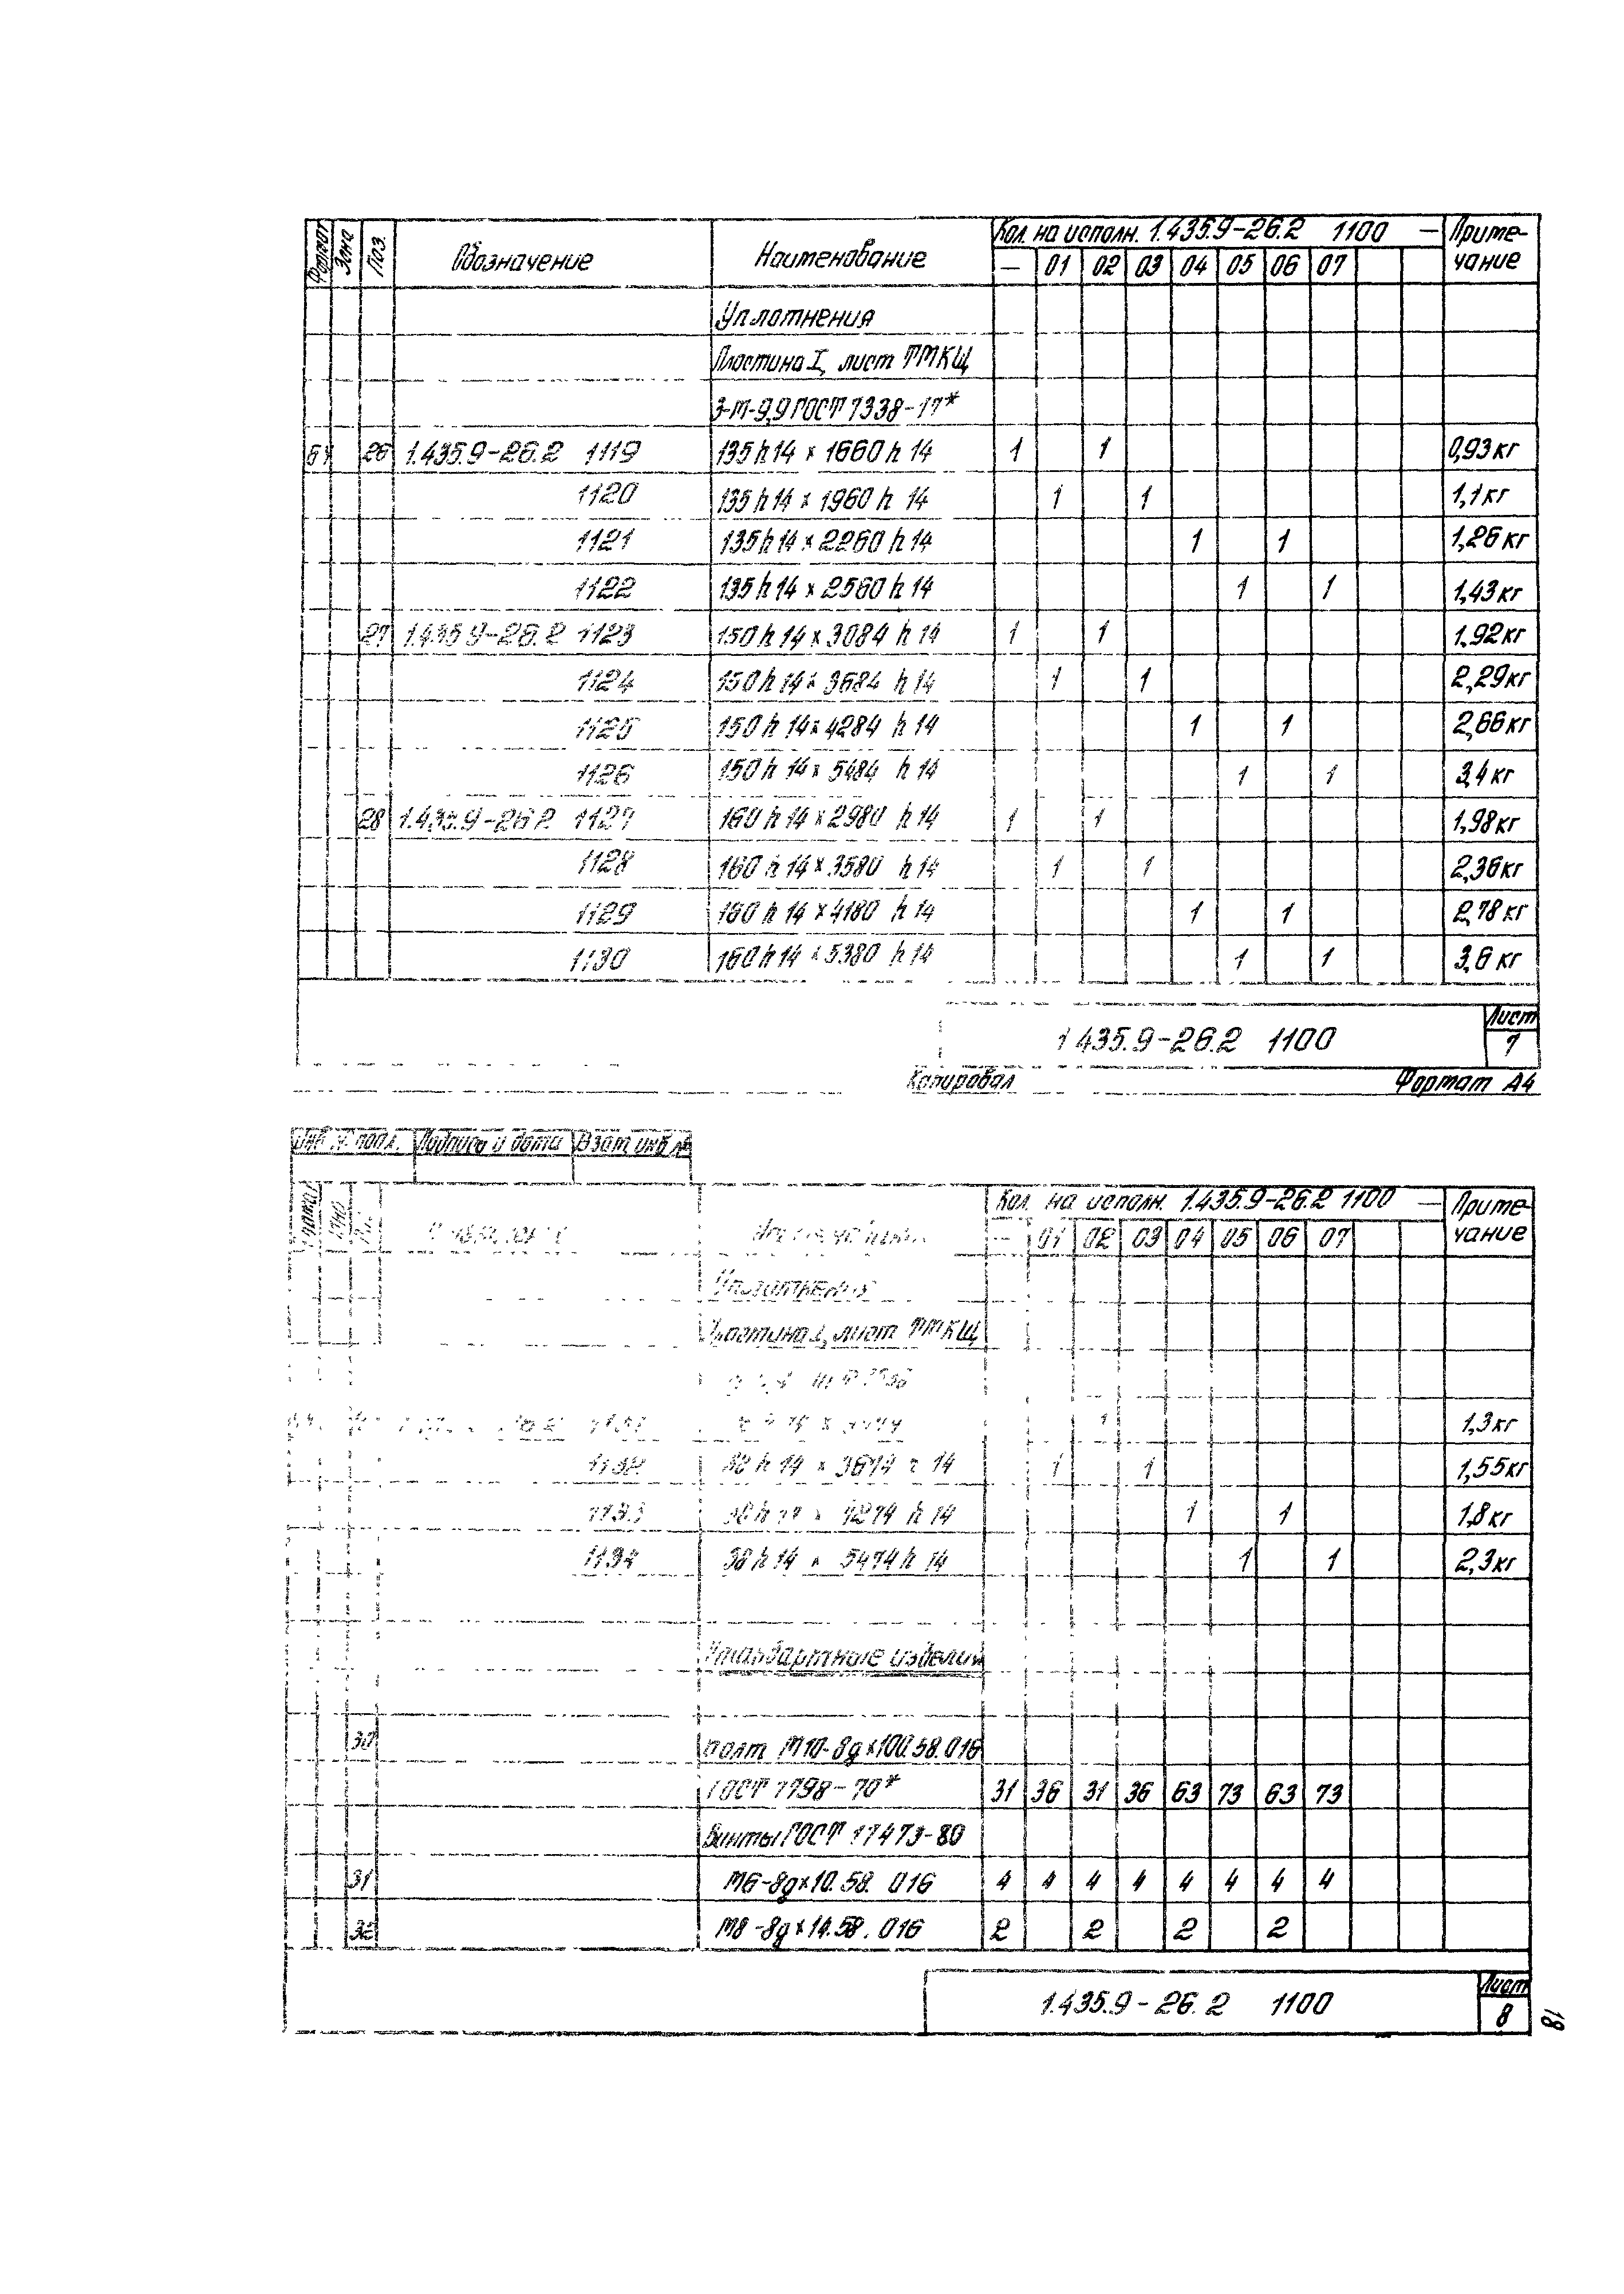 Формат Зона Поз. Обозначение Наименование Кол. на исполн. 1.435.9-26.2 1100 — Приме-
— 01 02 03 04 05 06 07 чание
Уплотнения
Пластина I, лист ТМКЩ
3-т-9,9 ГОСТ 7338-77*
БЧ 26 1.435.9-26.2 1119 135h14 x 1660h14 1 1 0,93кг
1120 135h14 x 1960h14 1 1 1,1кг
1121 135h14 x 2260h14 1 1 1,26кг
1122 135h14 x 2560h14 1 1 1,43кг
27 1.435.9-26.2 1123 150h14 x 3084h14 1 1 1.92кг
1124 150h14 x 3684h14 1 1 2,29кг
1125 150h14 x 4284h14 1 1 2,66кг
1126 150h14 x 5484h14 1 1 3,4кг
28 1.435.9-26.2 1127 160h14 x 2980h14 1 1 1,98кг
1128 160h14 x 3580h14 1 1 2,36кг
1129 160h14 x 4180h14 1 1 2,78кг
1130 160h14 x 5380h14 1 1 3,6кг
1.435.9-26.2 1100 Лист
7
Копировал Формат А4
Инв. № подл. Подпись и дата Взам. инв. №
Кол. на исполн. 1.435.9-26.2 1100 — Приме-
— 01 02 03 04 05 06 07 чание
Уплотнения
Пластина I, лист ТМКЩ
1 1,3кг
1132 h14 x 3674 h14 1 1 1,55кг
1133 h14 x 4274 h14 1 1 1,8кг
1134 98h14 x 5474h14 1 1 2,3кг
Стандартные изделия
30 Болт М10-8g x100.58.016
ГОСТ 7798-70* 31 36 31 36 63 73 63 73
Винты ГОСТ 17473-80
31 М6-8g x10.58.016 4 4 4 4 4 4 4 4
32 М8-8g x14.58.016 2 2 2 2
1.435.9-26.2 1100 Лист
8
18